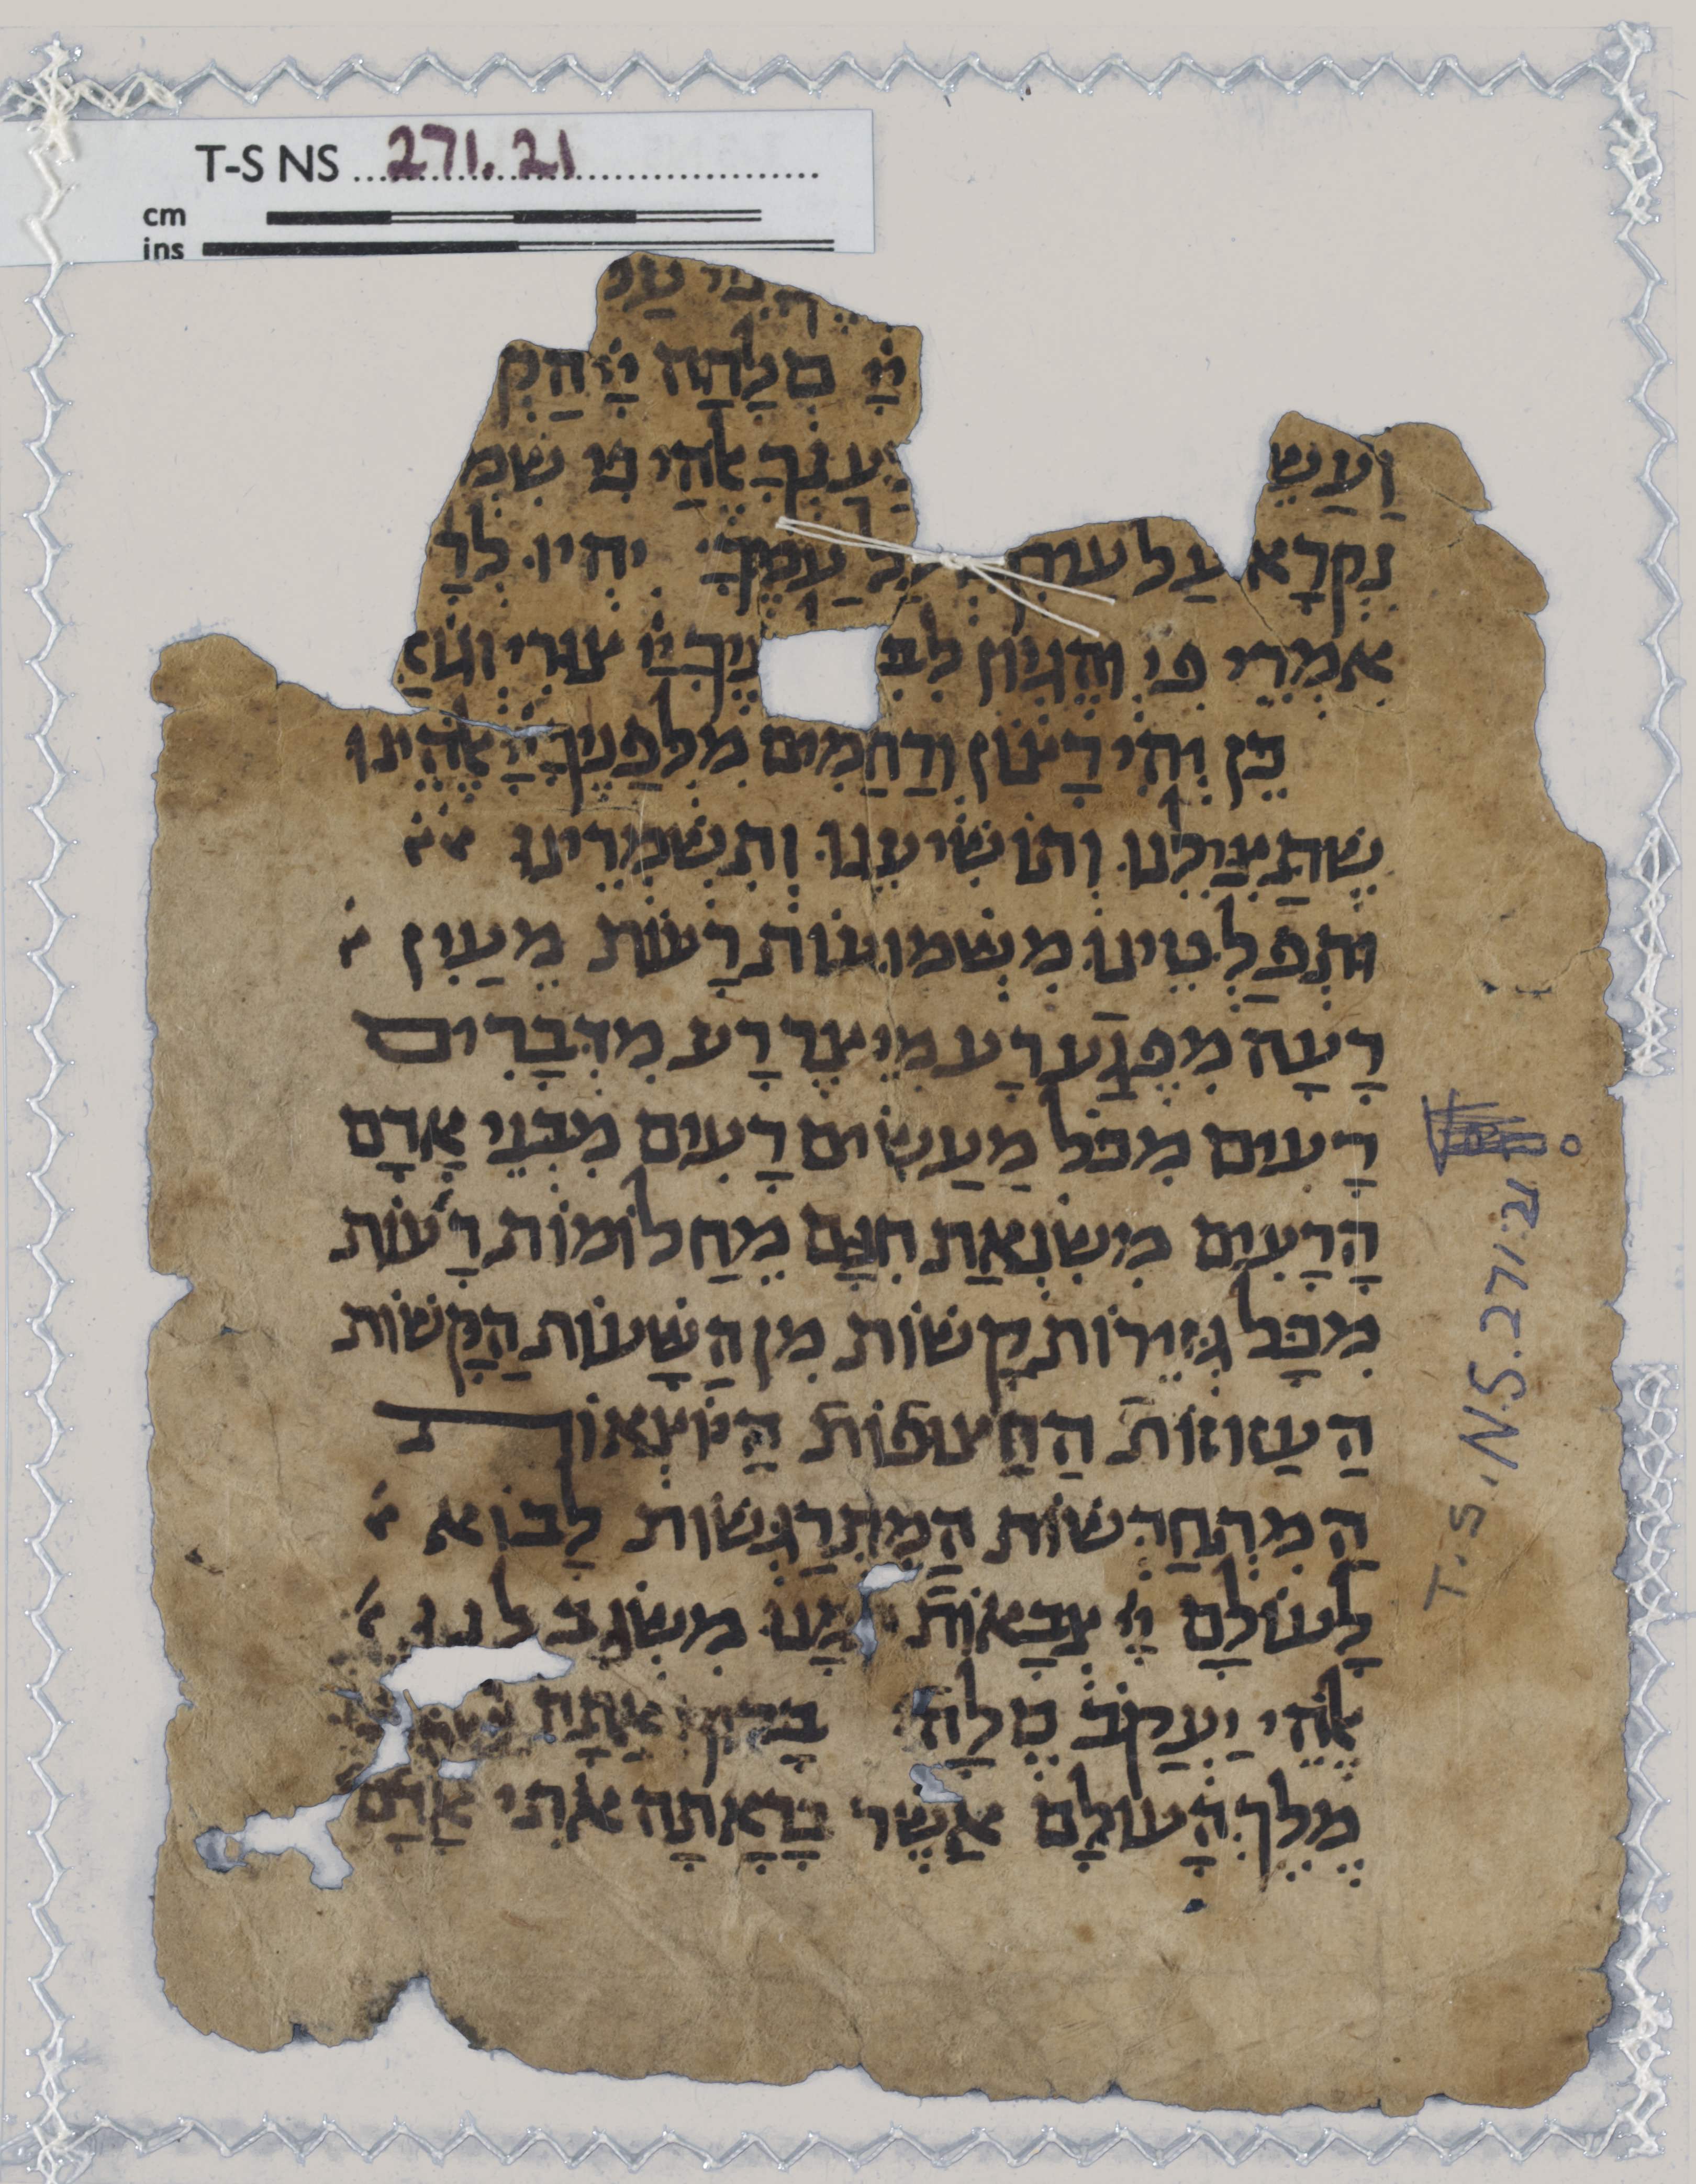 T-S NS 271.21
cm
ins
יְיָ סְלָחָה יְיָ הַקְ
וַעֲשֵׂ יַעַנְךָ אֱלֹהַי כִּי שִׁמְ
נִקְרָא עַל עירך ועל עַמֶּךָ יִהְיוּ לְרָ
אִמְרֵי פִי וְהֶגְיוֹן לִבִּ נֶיךָ יְיָ צוּרִי וְגֹאֲ
כֵּן יְהִי רָצוֹן וְרַחֲמִים מִלְּפָנֶיךָ יְיָ אֱלֹהֵינוּ
שֶׁתַּצִּילֵנוּ וְתוֹשִׁיעֵנוּ וְתִשְׁמְרֵינוּ
וּתְפַלְּטֵינוּ מִשְּׁמוּעוֹת רָעוֹת מֵעַיִן
רָעָה מִפֶּגַע רָע מִיֵּצֶר רָע מִדְּבָרִים
רָעִים מִכֹּל מַעֲשִׂים רָעִים מִבְּנֵי אָדָם
הָרָעִים מִשִּׂנְאַת חִנָּם מֵחֲלוֹמוֹת רָעוֹת
מִכָּל גְּזֵירוֹת קָשׁוֹת מִן הַשָּׁעוֹת הַקָּשׁוֹת
הַעַזוּזוֹת הַחֲצוּפוֹת הַיּוֹצְאוֹת
הַמִּתְחַדְּשׁוֹת הַמִּתְרַגְּשׁוֹת לָבוֹא
לָעוֹלָם יְיָ צְבָאוֹת מָנוּ מִשְׂגָּב לנו
אֱלֹהֵי יַעֲקֹב סֶלָה בָּרוּךְ אַתָּה
מֶלֶךְ הָעוֹלָם אֲשֶׁר בָּרָאתָה אֹתִי אָדָם
T-S. N.S. 271.21